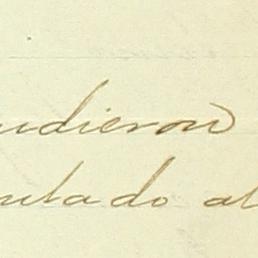 udieron
ulado al